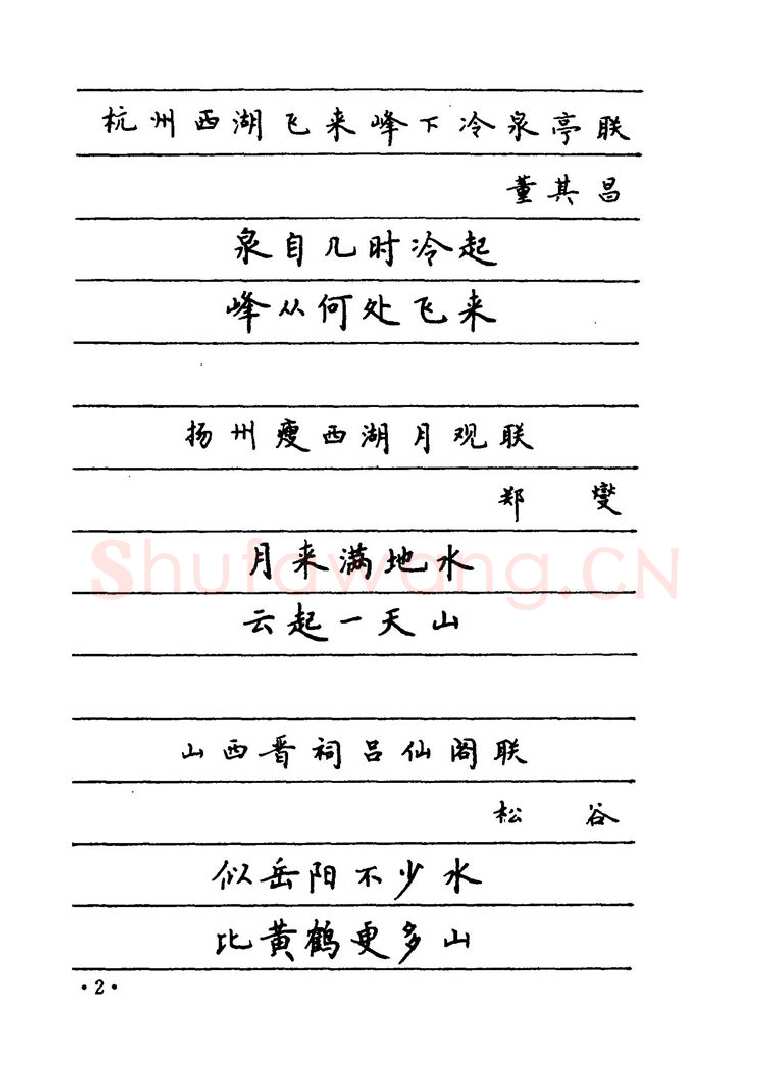 杭州西湖飞来峰下冷泉亭联
董其昌
泉自几时冷起
峰从何处飞来
扬州瘦西湖月观联
郑 燮
月来满地水
云起一天山
山西晋祠吕仙阁联
松 谷
似岳阳不少水
比黄鹤更多山
·2·
Shufawang.CN